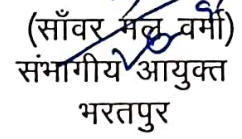 (साँवर मल वर्मा)
संभागीय आयुक्त
भरतपुर